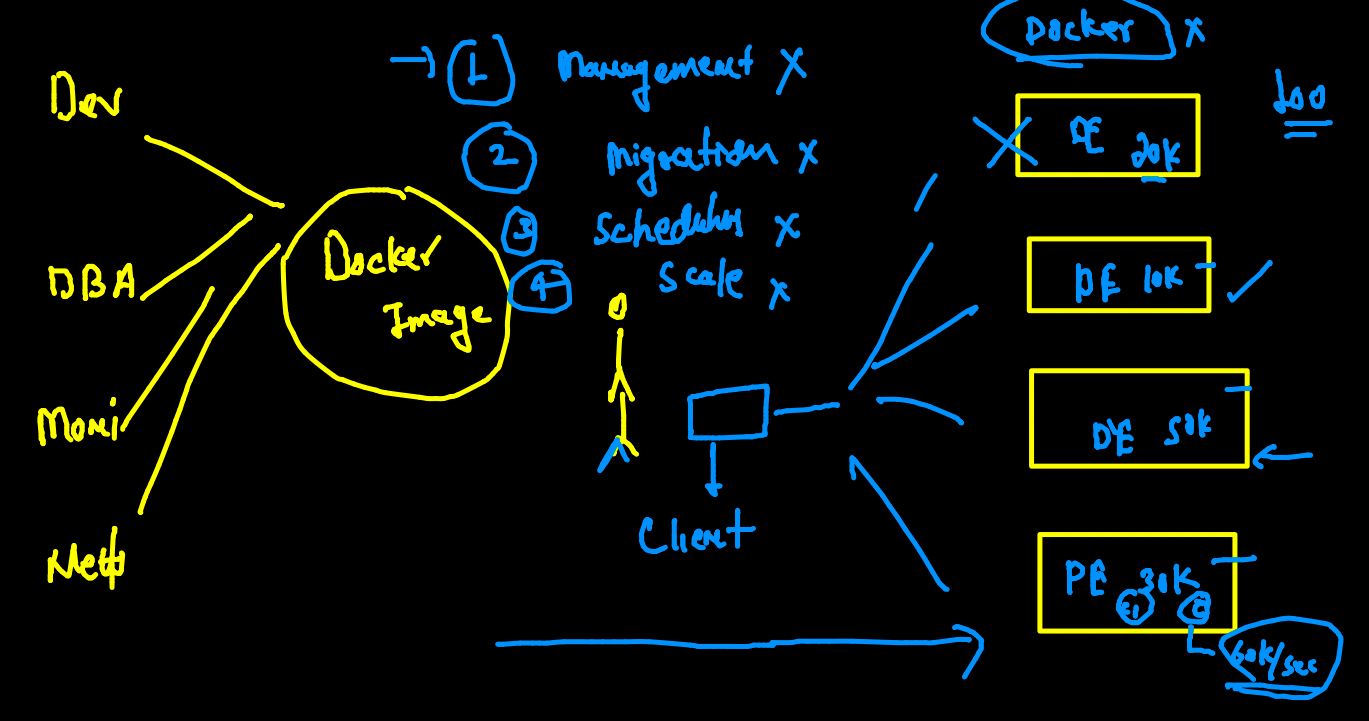 Dev
DBA
Moni
Docker
Image
1 Management X
2 Migration X
3 X
4 Scale X
Client
Docker X
100
DE 20K
DE 10K
DE 50K
DE 30K
C1 C
60K/sec